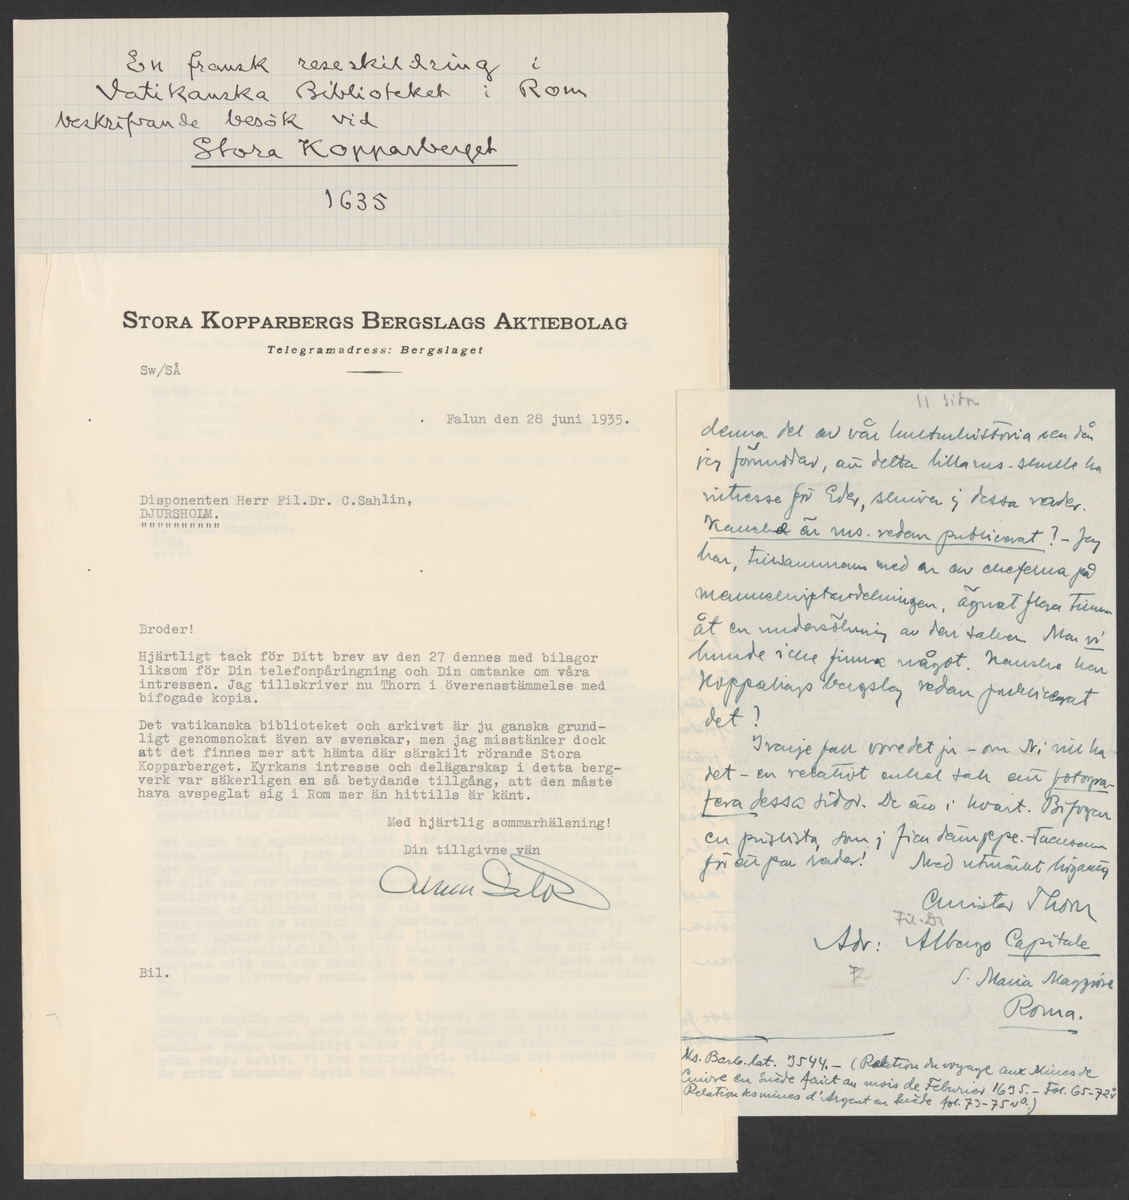 En fransk reseskildring i
Vatikanska Biblioteket i Rom
beskrifvande besök vid
Stora Kopparberget
1635
STORA KOPPARBERGS BERGSLAGS AKTIEBOLAG
Telegramadress: Bergslaget
Sw/SÅ
Falun den 28 juni 1935.
Disponenten Herr Fil.Dr. C.Sahlin,
DJURSHOLM.
""""""""""
Broder!
Hjärtligt tack för Ditt brev av den 27 dennes med bilagor
liksom för Din telefonpåringning och Din omtanke om våra
intressen. Jag tillskriver nu Thorn i överensstämmelse med
bifogade kopia.
Det vatikanska biblioteket och arkivet är ju ganska grund-
ligt genomsnokat även av svenskar, men jag misstänker dock
att det finnes mer att hämta där särskilt rörande Stora
Kopparberget. Kyrkans intresse och delägarskap i detta berg-
verk var säkerligen en så betydande tillgång, att den måste
hava avspeglat sig i Rom mer än hittills är känt.
Med hjärtlig sommarhälsning!
Din tillgivne vän
Bil.
11 sidor
denna del av vår kulturhistoria men då
jag förmodar, att detta lilla ms. skulle ha
intresse för Eder, skriver j dessa rader.
Kanske är ms. redan publicerat? - Jag
har, tillsammans med en av cheferna på
manuskriptavdelningen, ägnat flera timmar
åt en undersökning av den saken. Men vi
kunde icke finna något. Kanske har
Kopparbergs bergslag redan publicerat
det?
I varje fall vore det ju - om Ni vill ha
det - en relativt enkel sak att fotogra-
fera dessa sidor. De äro i kvart. Bifogar
en prislista, som j fick
för ett par rader! Med utmärkt högaktning
Christer Thorn
Fil. Dr
Adr: Albergo Capitole
S. Maria Maggiore
Roma.
Ms. Barb. lat. 3544. - (Relation du voyage aux Mines de
Cuivre en Suède faict au mois de Febvrier 1635. - Fol. 65-72v
Relation des mines d'Argent en Suède fol. 73-75 vo.)